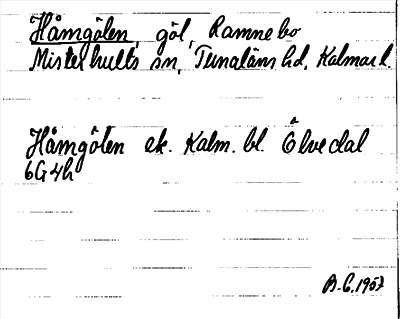 Håmgölen, göl, Ramnebo
Misterhults sn, Tunaläns hd, Kalmar l.
Håmgölen ek. Kalm. bl. Ålvedal
6G4h
A.C. 1957